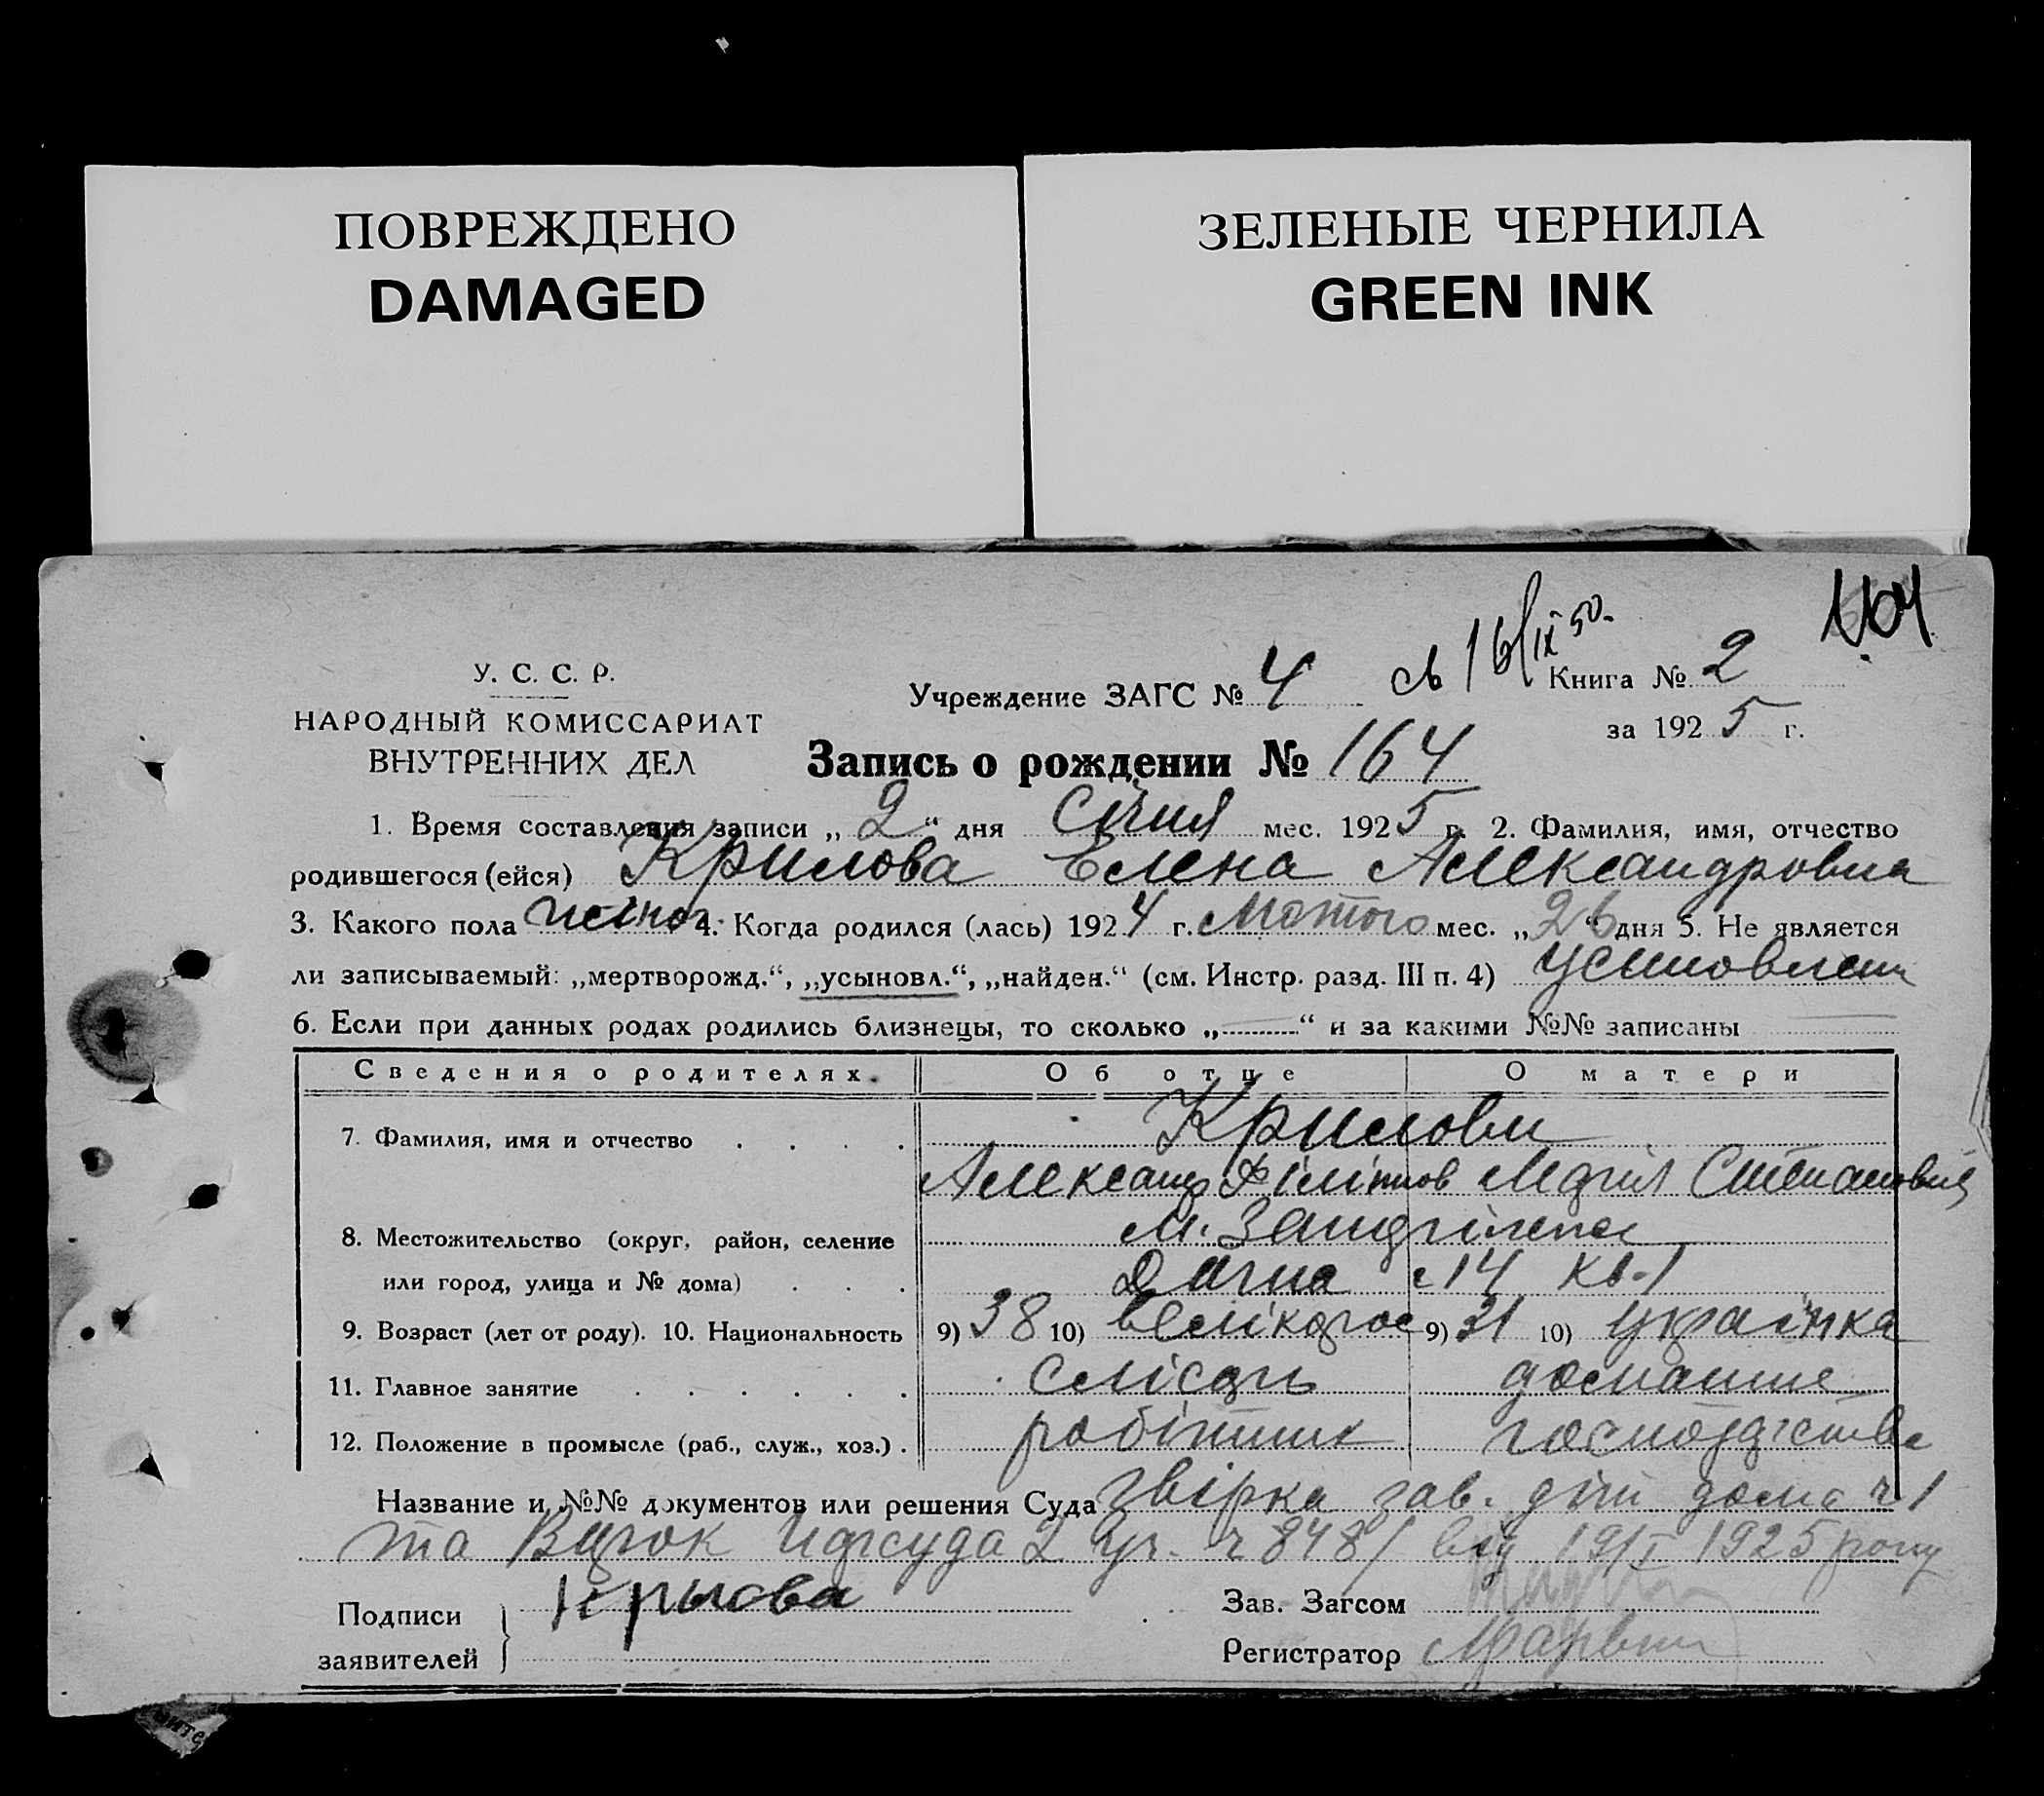 ПОВРЕЖДЕНО
DAMAGED
ЗЕЛЕНЫЕ ЧЕРНИЛА
GREEN INK
164
св 16/IX 50.
У. С. С. Р.
НАРОДНЫЙ КОМИССАРИАТ
ВНУТРЕННИХ ДЕЛ
Учреждение ЗАГС № 4
Книга № 2
за 1925 г.
Запись о рождении № 164
1. Время составления записи „ 2 “ дня Січня мес. 1925 г. 2. Фамилия, имя, отчество
родившегося (ейся) Крилова Елена Александровна
3. Какого пола жіноч. 4. Когда родился (лась) 1924 г. Лютого мес. „ 26 “ дня 5. Не является
ли записываемый: „мертворожд.“, „усыновл.“, „найден.“ (см. Инстр. разд. III п. 4) усиновлена
6. Если при данных родах родились близнецы, то сколько „ — “ и за какими №№ записаны —
Сведения о родителях. Об отце О матери
7. Фамилия, имя и отчество . . . . Крилови
Александ Філіпов Марія Степановна
8. Местожительство (округ, район, селение
или город, улица и № дома) . . . ч 14 кв. 1
9. Возраст (лет от роду). 10. Национальность 9) 38 10) великорос 9) 31 10) українка
11. Главное занятие . . . . . . слюсарь домашнє
12. Положение в промысле (раб., служ., хоз.) . робітник господарство
Название и №№ документов или решения Суда зав. діти дома ч 1
та Нарсуда 2 уч. ч 8481 від 19/I 1925 року
Подписи
заявителей
Крылова
Зав. Загсом
Регистратор